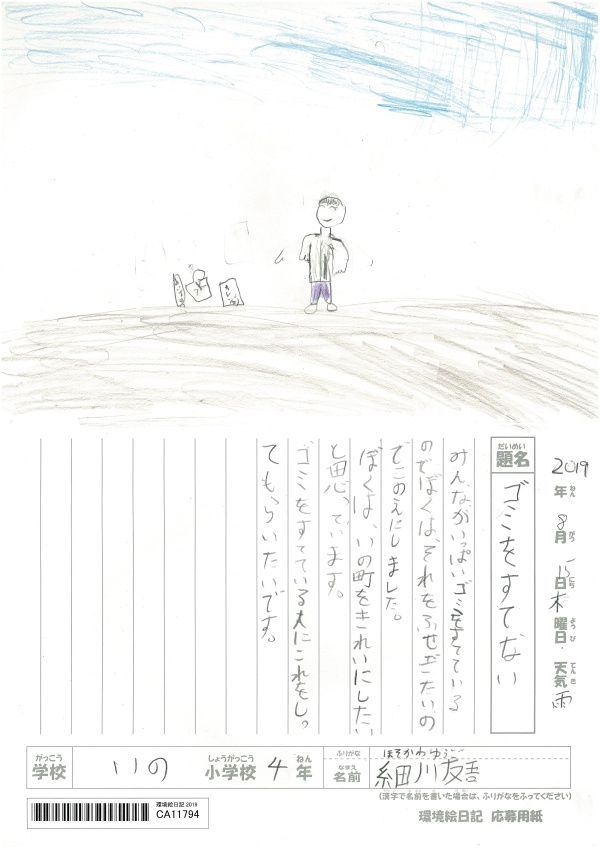 2019年8月15日木曜日・天気雨
ねん
がつ
にち
ようび
てんき
だいめい
題名
ゴミをすてない
みんながいっぱいゴミをすてている
のでぼくは、それをふせぎたいの
でこのえにしました。
ぼくは、いの町をきれいにしたい
と思っています。
ゴミをすてている人にこれをし。
てもらいたいです。
がっこう
学校
いの
しょうがっこう
小学校
4
ねん
年
ふりがな
ほそかわゆうご
なまえ
名前
細川友吾
(漢字で名前を書いた場合は、ふりがなをふってください)
環境絵日記 2019
CA11794
環境絵日記 応募用紙